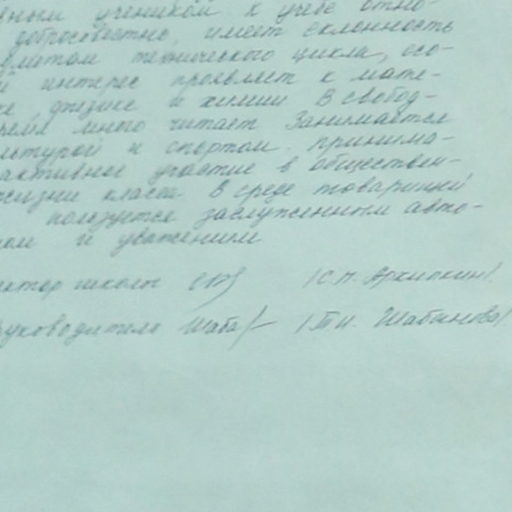 вным учеником к учебе отно-
добросовестно, имеет склонность
метам технического цикла, осо-
й интерес проявляет к мате-
ке физике и химии В свобод-
ремя много читает Занимается
льтурой и спортом. принима-
активное участие в обществен-
жизни класса В среде товарищей
пользуется заслуженным авто-
том и уважением
ектор школы /С.П. Архипкин/.
руководитель Шаба /Т.И. Шабанова/